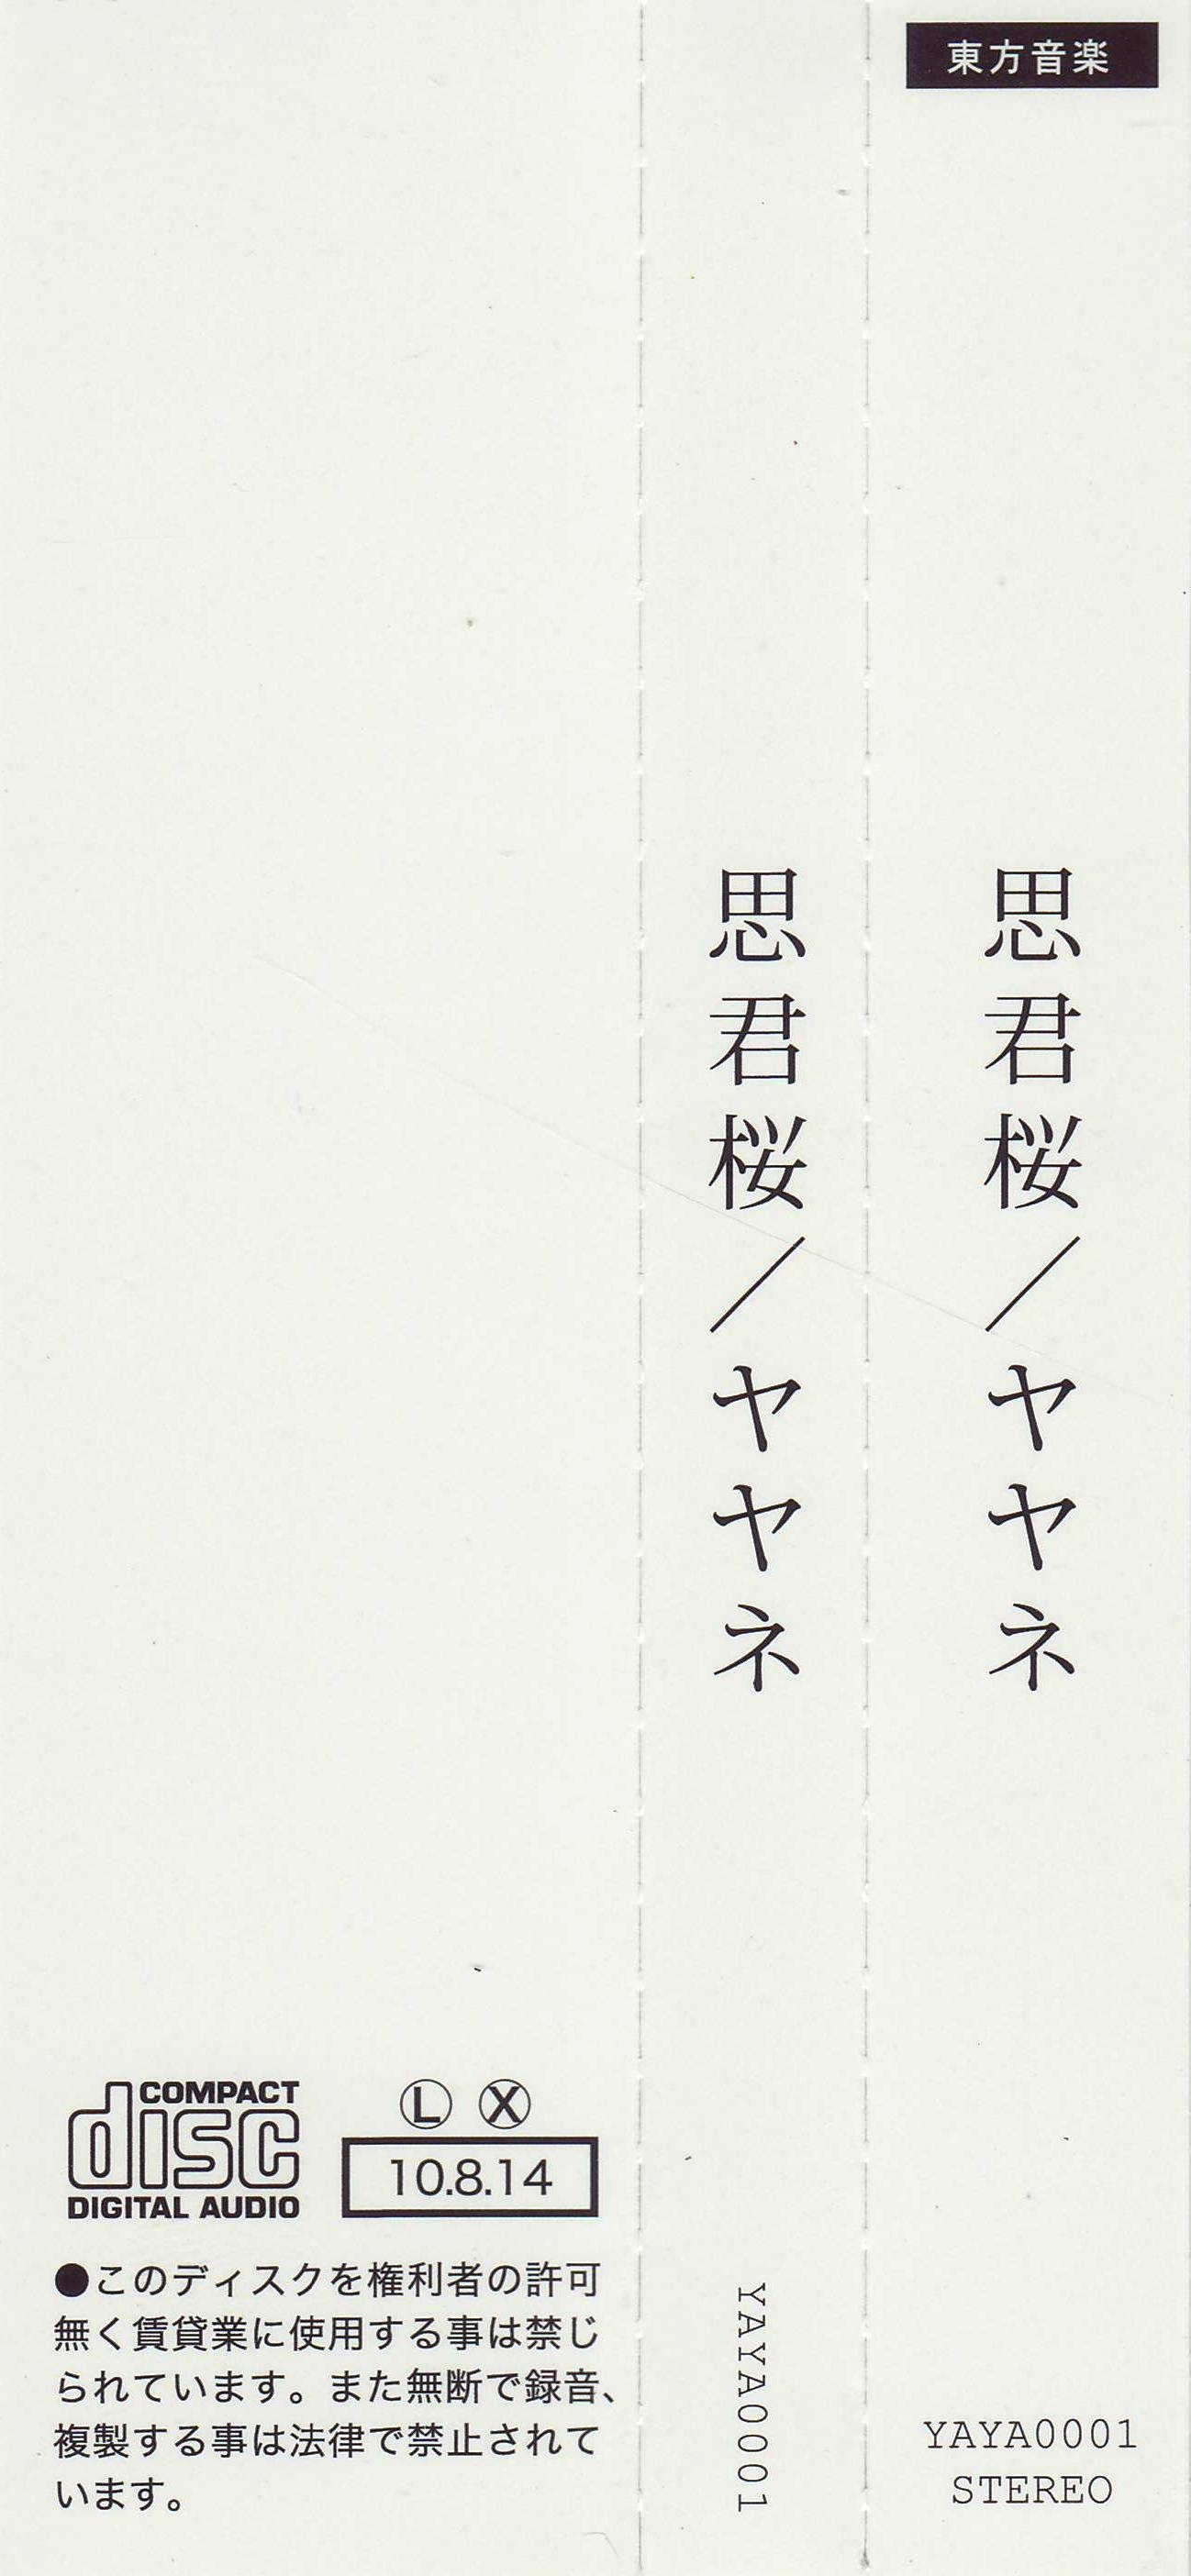 東方音楽
思君桜／ヤヤネ
YAYA0001
STEREO
思君桜／ヤヤネ
YAYA0001
COMPACT
disc
DIGITAL AUDIO
Ⓛ Ⓧ
10.8.14
●このディスクを権利者の許可
無く賃貸業に使用する事は禁じ
られています。また無断で録音、
複製する事は法律で禁止されて
います。